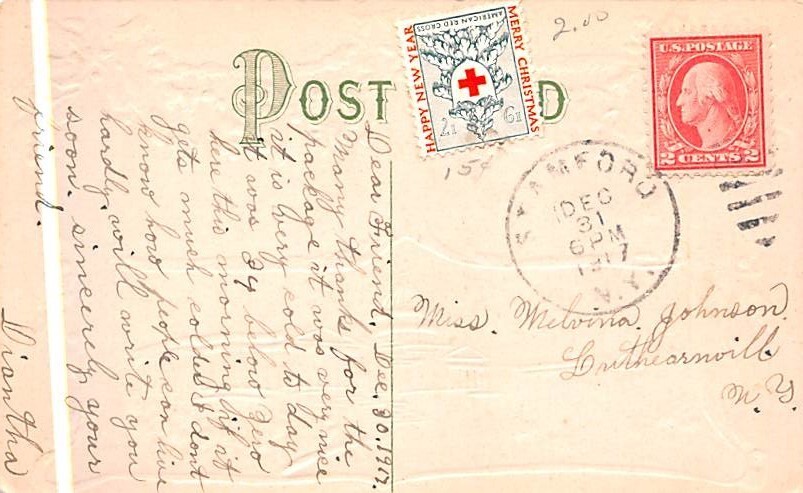 POST
D
HAPPY NEW YEAR
AMERICAN RED CROSS
MERRY CHRISTMAS
19 17
2.00
15¢
U.S. POSTAGE
2 CENTS 2
STAMFORD
DEC
31
6 PM
1917
N.Y.
Dear Friend. Dec. 30. 1917.
Many thanks for the
package it was very nice
it is very cold to day
it was 29 below zero
here this morning if it
gets much colder I dont
know how people can live
hardly. will write you
soon. sincerely your
friend.
Diantha
Miss. Melvina Johnson.
N.Y.